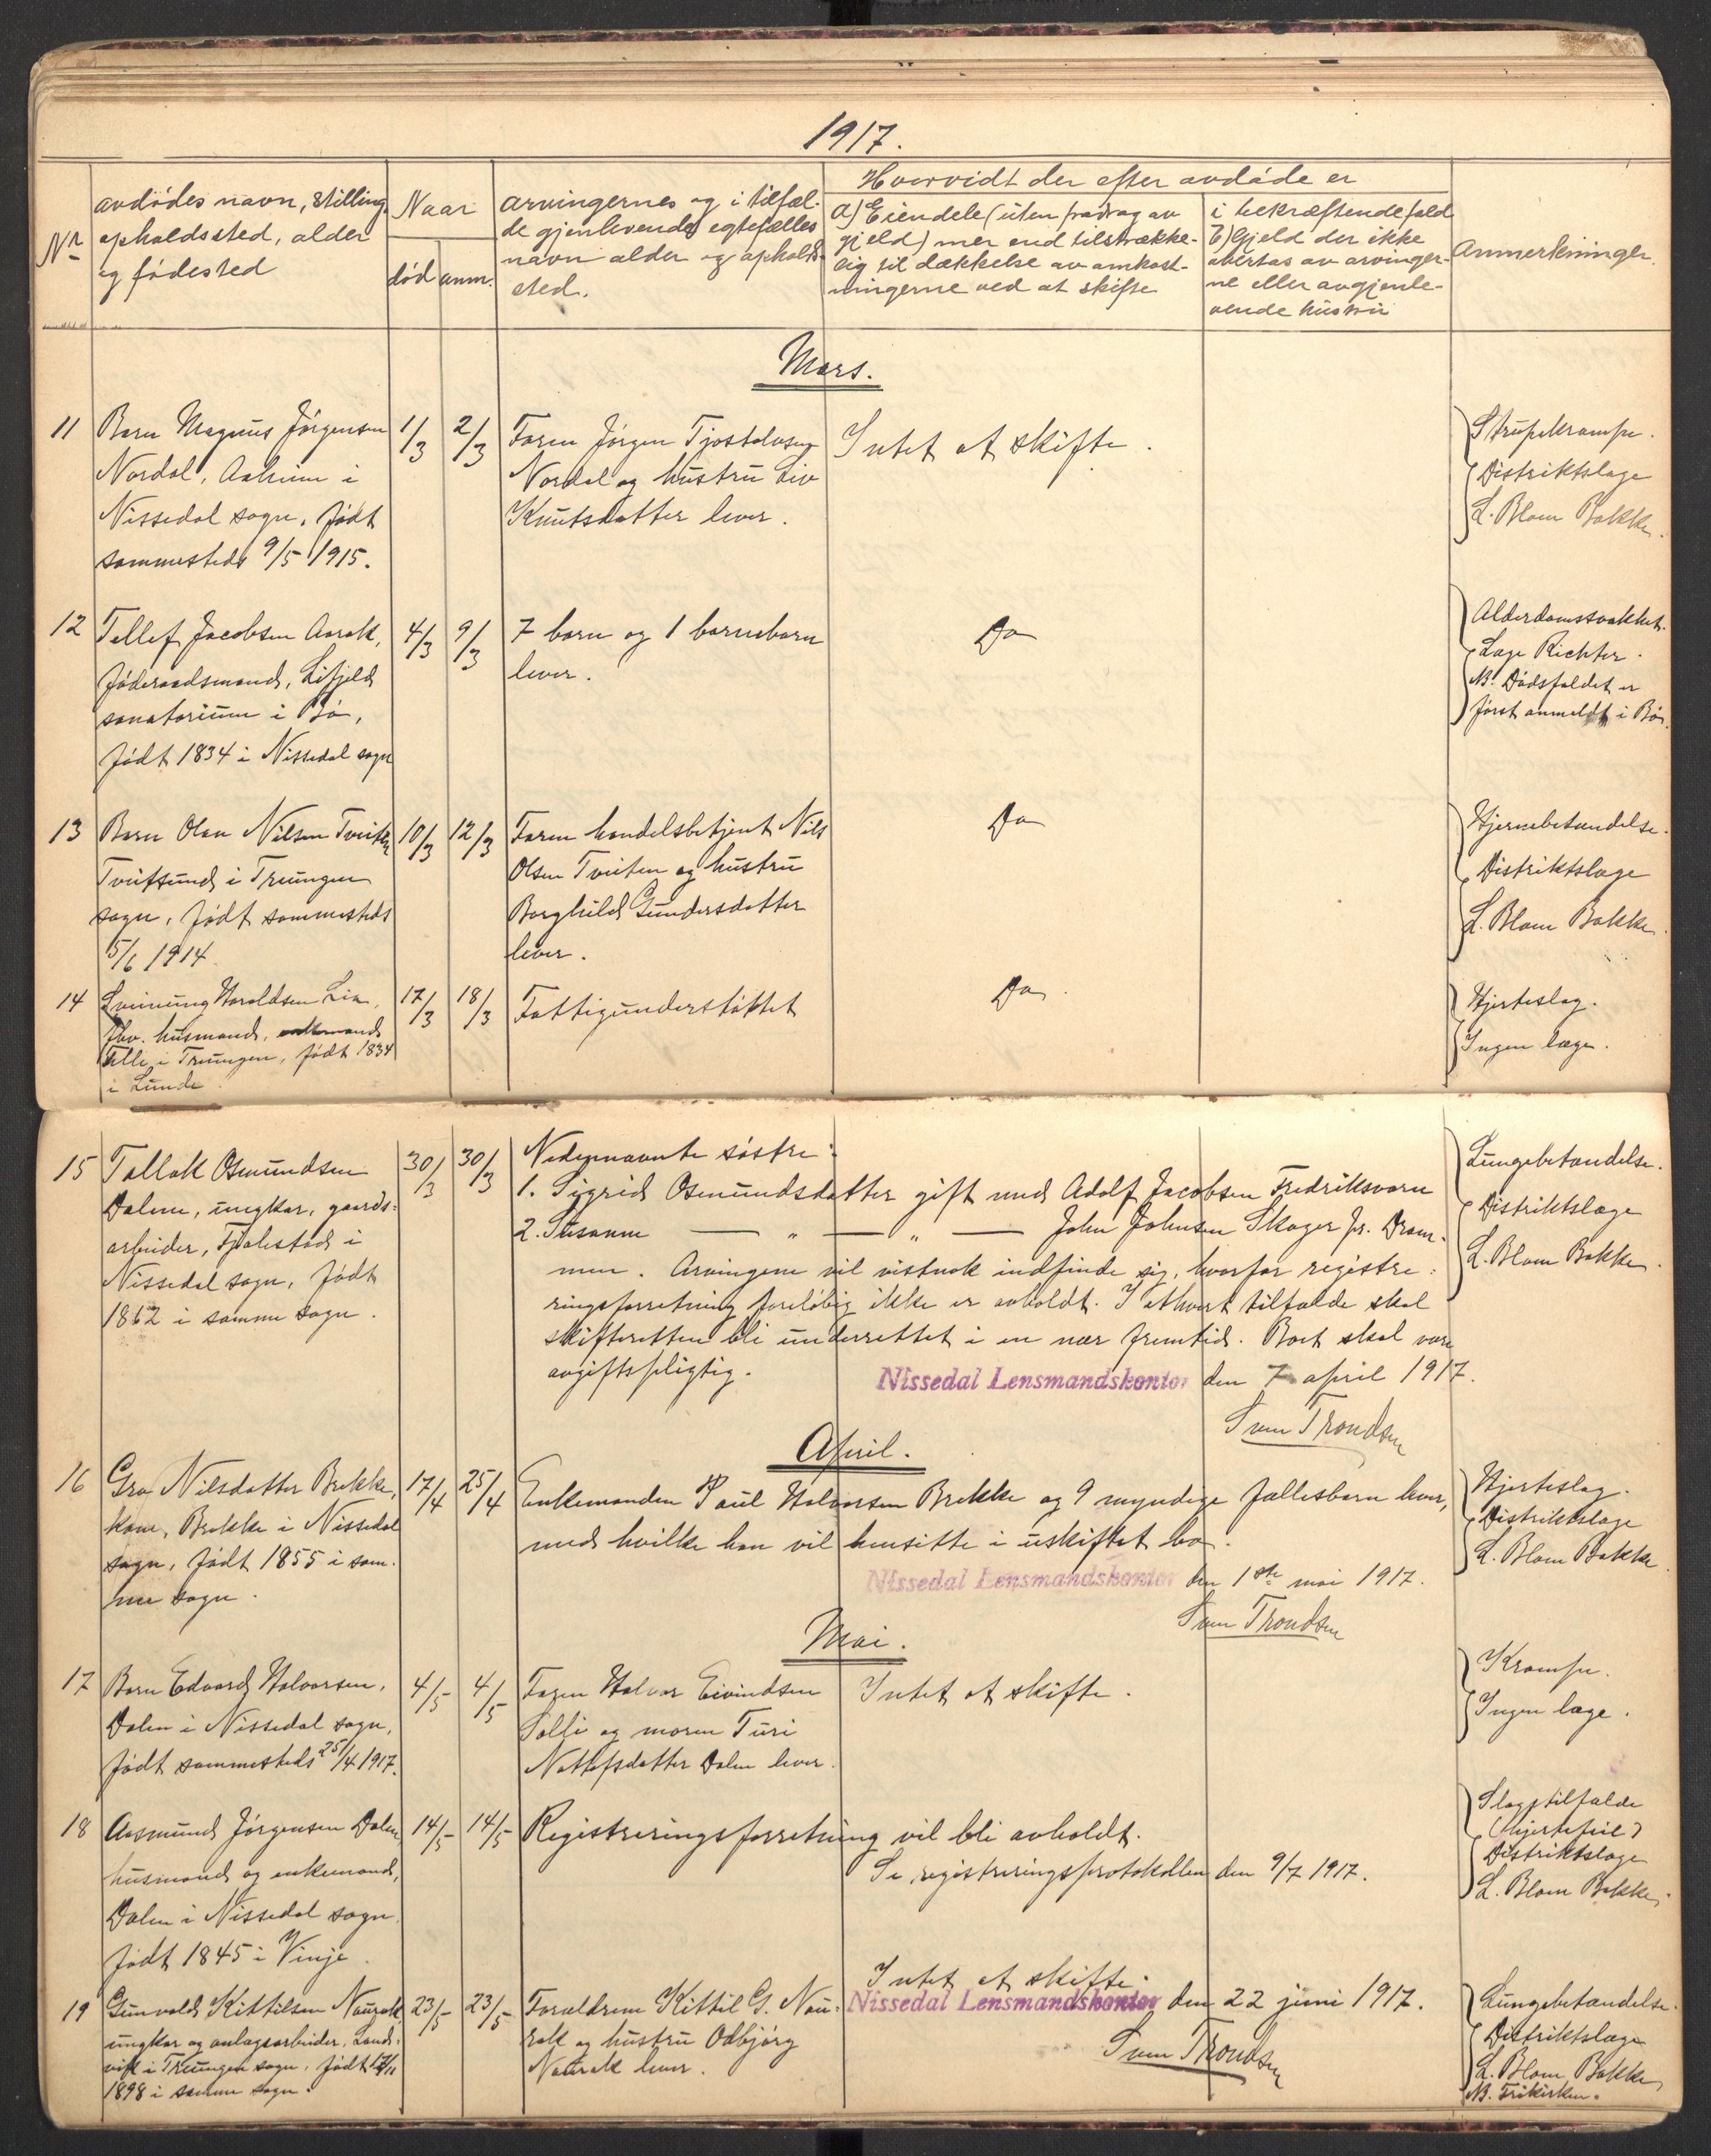 1917.
Nr.
avdødes navn, stilling,
opholdssted, alder
og fødested
Naar
død
anm.
arvingernes og i tilfæl-
de gjenlevende egtefælles
navn alder og opholds-
sted.
Hvorvidt der efter avdøde er
a) Eiendele (uten fradrag av
gjeld) mer end tilstrække-
lig til dækkelse av omkost-
ningerne ved at skifte
i bekræftende fald
b) Gjeld der ikke
overtas av arvinger-
ne eller avgjenle-
vende hustru
Anmerkninger.
Mars.
11
Barn Magnus Jørgensen
Nordal, i
Nissedal sogn, født
sammesteds 9/5 1915.
1/3
2/3
Faren Jørgen Tjostolvsen
Nordal og hustru Liv
Knutsdatter lever.
Intet at skifte.
Strupekrampe.
Distriktslæge
L. Blom Bakke.
12
Tellef Jacobsen Aarak,
føderaadsmand, Lifjeld
sanatorium i Bø,
født 1834 i Nissedal sogn
4/3
9/3
7 barn og 1 barnebarn
lever.
Do
Alderdomssvakhet.
Læge Richter.
NB. Dødsfaldet er
først anmeldt i Bø.
13
Barn Olav Nilsen Tveiten
Tveitsund i Treungen
sogn, født sammesteds
5/6 1914.
10/3
12/3
Faren handelsbetjent Nils
Olsen Tveiten og hustru
Borghild Gundersdatter
lever.
Do
Hjernebetændelse.
Distriktslæge
L. Blom Bakke.
14
Sveinung Haroldsen Lia,
fhv. husmand, enkemand
i Treungen, født 1834
i Lunde
17/3
18/3
Fattigunderstøttet
Do.
Hjerteslag.
Ingen læge.
15
Tallak Osmundsen
Dalen, ungkar, gaards-
arbeider, Fjalestad i
Nissedal sogn, født
1862 i samme sogn.
30/3
30/3
Nedennævnte søstre:
1. Sigrid Osmundsdatter gift med Adolf Jacobsen Fredriksvern
2. Susanne — " — " — John Johnsen Skoger pr. Dram-
men. Arvingene vil vistnok indfinde sig, hvorfor registre-
ringsforretning foreløbig ikke er avholdt. I ethvert tilfælde skal
skifteretten bli underrettet i en nær fremtid. Boet skal være
avgiftspligtig.
Nissedal Lensmandskontor den 7 april 1917.
Sven Trondsen
Lungebetændelse.
Distriktslæge
L. Blom Bakke.
April.
16
Gro Nilsdatter Brekke,
kone, Brekke i Nissedal
sogn, født 1855 i sam-
me sogn.
17/4
25/4
Enkemanden Paul Halvorsen Brekke og 9 myndige fællesbarn lever,
med hvilke han vil hensitte i uskiftet bo.
Nissedal Lensmandskontor den 1ste mai 1917.
Sven Trondsen
Hjerteslag.
Distriktslæge
L. Blom Bakke
Mai.
17
Barn Edvard Halvorsen,
Dalen i Nissedal sogn,
født sammesteds 25/4 1917.
4/5
4/5
Faren Halvor Eivindsen
Solli og moren Turi
Nottofsdatter Dalen lever.
Intet at skifte.
Krampe.
Ingen læge.
18
Aasmund Jørgensen Dalen
husmand og enkemand,
Dalen i Nissedal sogn,
født 1845 i Vinje.
14/5
14/5
Registreringsforretning vil bli avholdt.
Se registreringsprotokollen den 9/7 1917.
Slagtilfælde
(hjertefeil)
Distriktslæge
L. Blom Bakke.
19
Gunvald Kittilsen Naurak
ungkar og anlægsarbeider, Sand-
vik i Treungen sogn, født 17/11
1898 i samme sogn.
23/5
23/5
Forældrene Kittil G. Nau-
rak og hustru Odbjørg
Naurak lever.
Intet at skifte.
Nissedal Lensmandskontor den 22 juni 1917.
Sven Trondsen
Lungebetændelse.
Distriktslæge
L. Blom Bakke
NB. Frikirken.